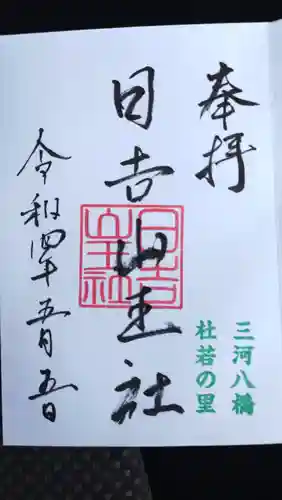 奉拝
三河八橋
杜若の里
日吉山王社
日吉山王社
令和四年五月五日